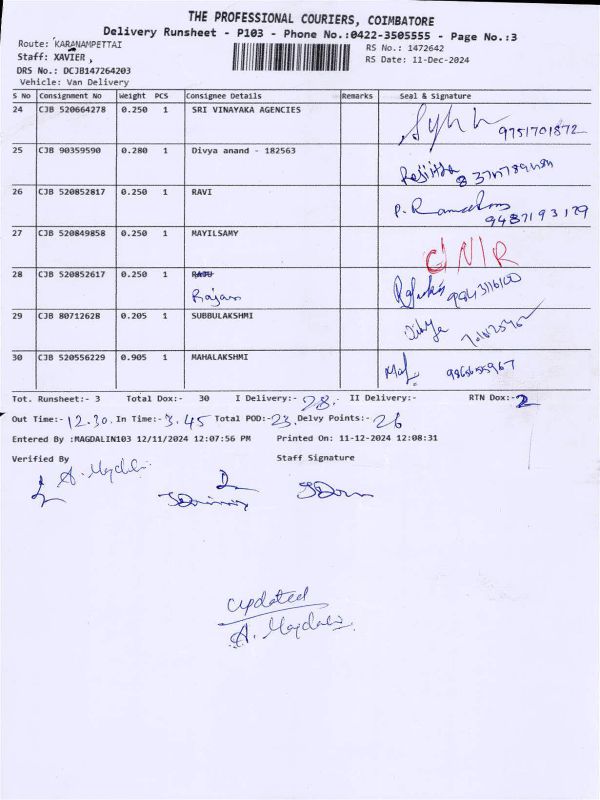 THE PROFESSIONAL COURIERS, COIMBATORE
Delivery Runsheet - P103 - Phone No.:0422-3505555 - Page No.:3
Route: KARANAMPETTAI
RS No.: 1472642
Staff: XAVIER ,
RS Date: 11-Dec-2024
DRS No.: DCJB147264203
Vehicle: Van Delivery
S No Consignment No Weight PCS Consignee Details Remarks Seal & Signature
24 CJB 520664278 0.250 1 SRI VINAYAKA AGENCIES 9751701872
25 CJB 90359590 0.280 1 Divya anand - 182563
26 CJB 520852817 0.250 1 RAVI 9487193179
27 CJB 520849858 0.250 1 MAYILSAMY C/N/R
28 CJB 520852617 0.250 1 RAJU
Rajan
29 CJB 80712628 0.205 1 SUBBULAKSHMI
30 CJB 520556229 0.905 1 MAHALAKSHMI
Tot. Runsheet:- 3 Total Dox:- 30 I Delivery:- 28. II Delivery:- RTN Dox:- 2
Out Time:- 12.30. In Time:- 3.45 Total POD:- 23. Delvy Points:- 26
Entered By :MAGDALIN103 12/11/2024 12:07:56 PM Printed On: 11-12-2024 12:08:31
Verified By Staff Signature
A. Magdalin
updated
A. Magdalin